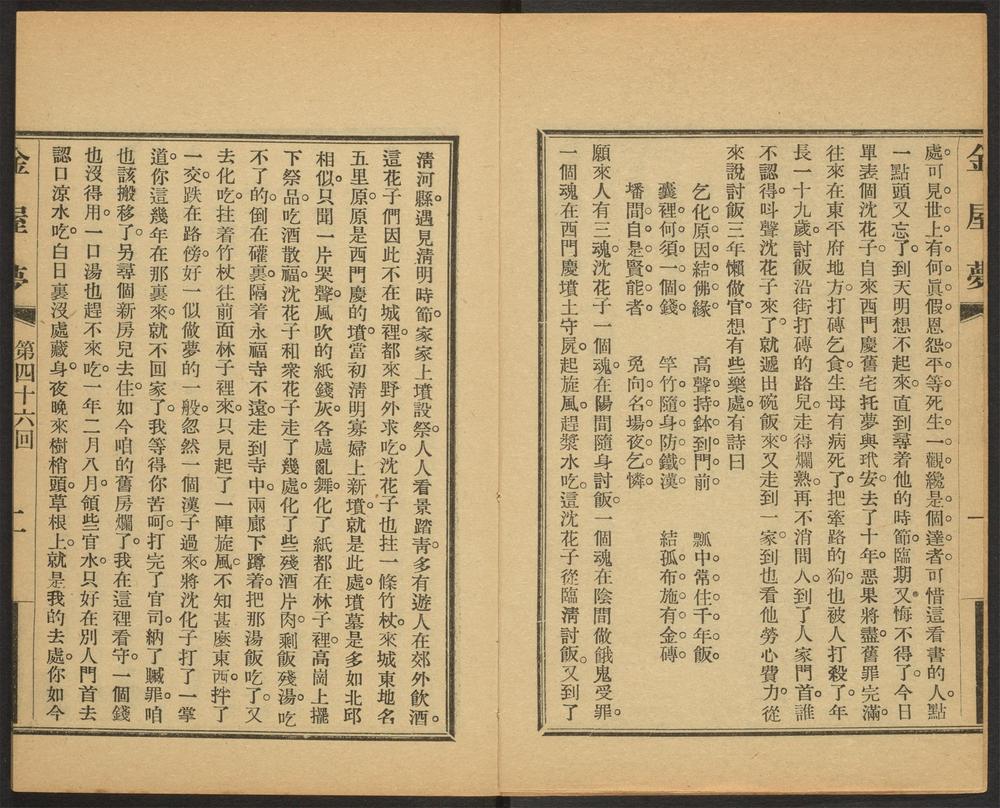 金屋夢
一
處可見世上有何眞假恩怨平等死生一觀纔是個達者可惜這看書的人點
一點頭又忘了到天明想不起來直到尋着他的時節臨期又悔不得了今日
單表個沈花子自來西門慶舊宅托夢與玳安去了十年惡果將盡舊罪完滿
往來在東平府地方打磚乞食生母有病死了把牽路的狗也被人打殺了年
長一十九歲討飯沿街打磚的路兒走得爛熟再不消問人到了人家門首誰
不認得叫聲沈花子來了就遞出碗飯來又走到一家到也看他勞心費力從
來說討飯三年懶做官想有些樂處有詩曰
乞化原因結佛緣　高聲持鉢到門前　瓢中常住千年飯
囊裡何須一個錢　竿竹隨身防鐵漢　結孤布施有金磚
墦間自是賢能者　免向名場夜乞憐
願來人有三魂沈花子一個魂在陽間隨身討飯一個魂在陰間做餓鬼受罪
一個魂在西門慶墳上守屍起旋風趕漿水吃這沈花子從臨淸討飯又到了
淸河縣遇見淸明時節家家上墳設祭人人看景踏靑多有遊人在郊外飲酒
這花子們因此不在城裡都來野外求吃沈花子也拄一條竹杖來城東地名
五里原原是西門慶的墳當初淸明寡婦上新墳就是此處墳墓是多如北邙
相似只聞一片哭聲風吹的紙錢灰各處亂舞化了紙都在林子裡高崗上擺
下祭品吃酒散福沈花子和衆花子走了幾處化了些殘酒片肉剩飯殘湯吃
不了的倒在礶裏隔着永福寺不遠走到寺中兩廊下蹲着把那湯飯吃了又
去化吃拄着竹杖往前面林子裡來只見起了一陣旋風不知甚麽東西拌了
一交跌在路傍好一似做夢的一般忽然一個漢子過來將沈化子打了一掌
道你這幾年在那裏來就不回家了我等得你苦呵打完了官司納了贓罪咱
也該搬移了另尋個新房兒去住如今咱的舊房爛了我在這裡看守一個錢
也沒得用一口湯也趕不來吃一年二月八月領些官水只好在別人門首去
認口涼水吃白日裏沒處藏身夜晚來樹梢頭草根上就是我的去處你如今
金屋夢
第四十六回
二